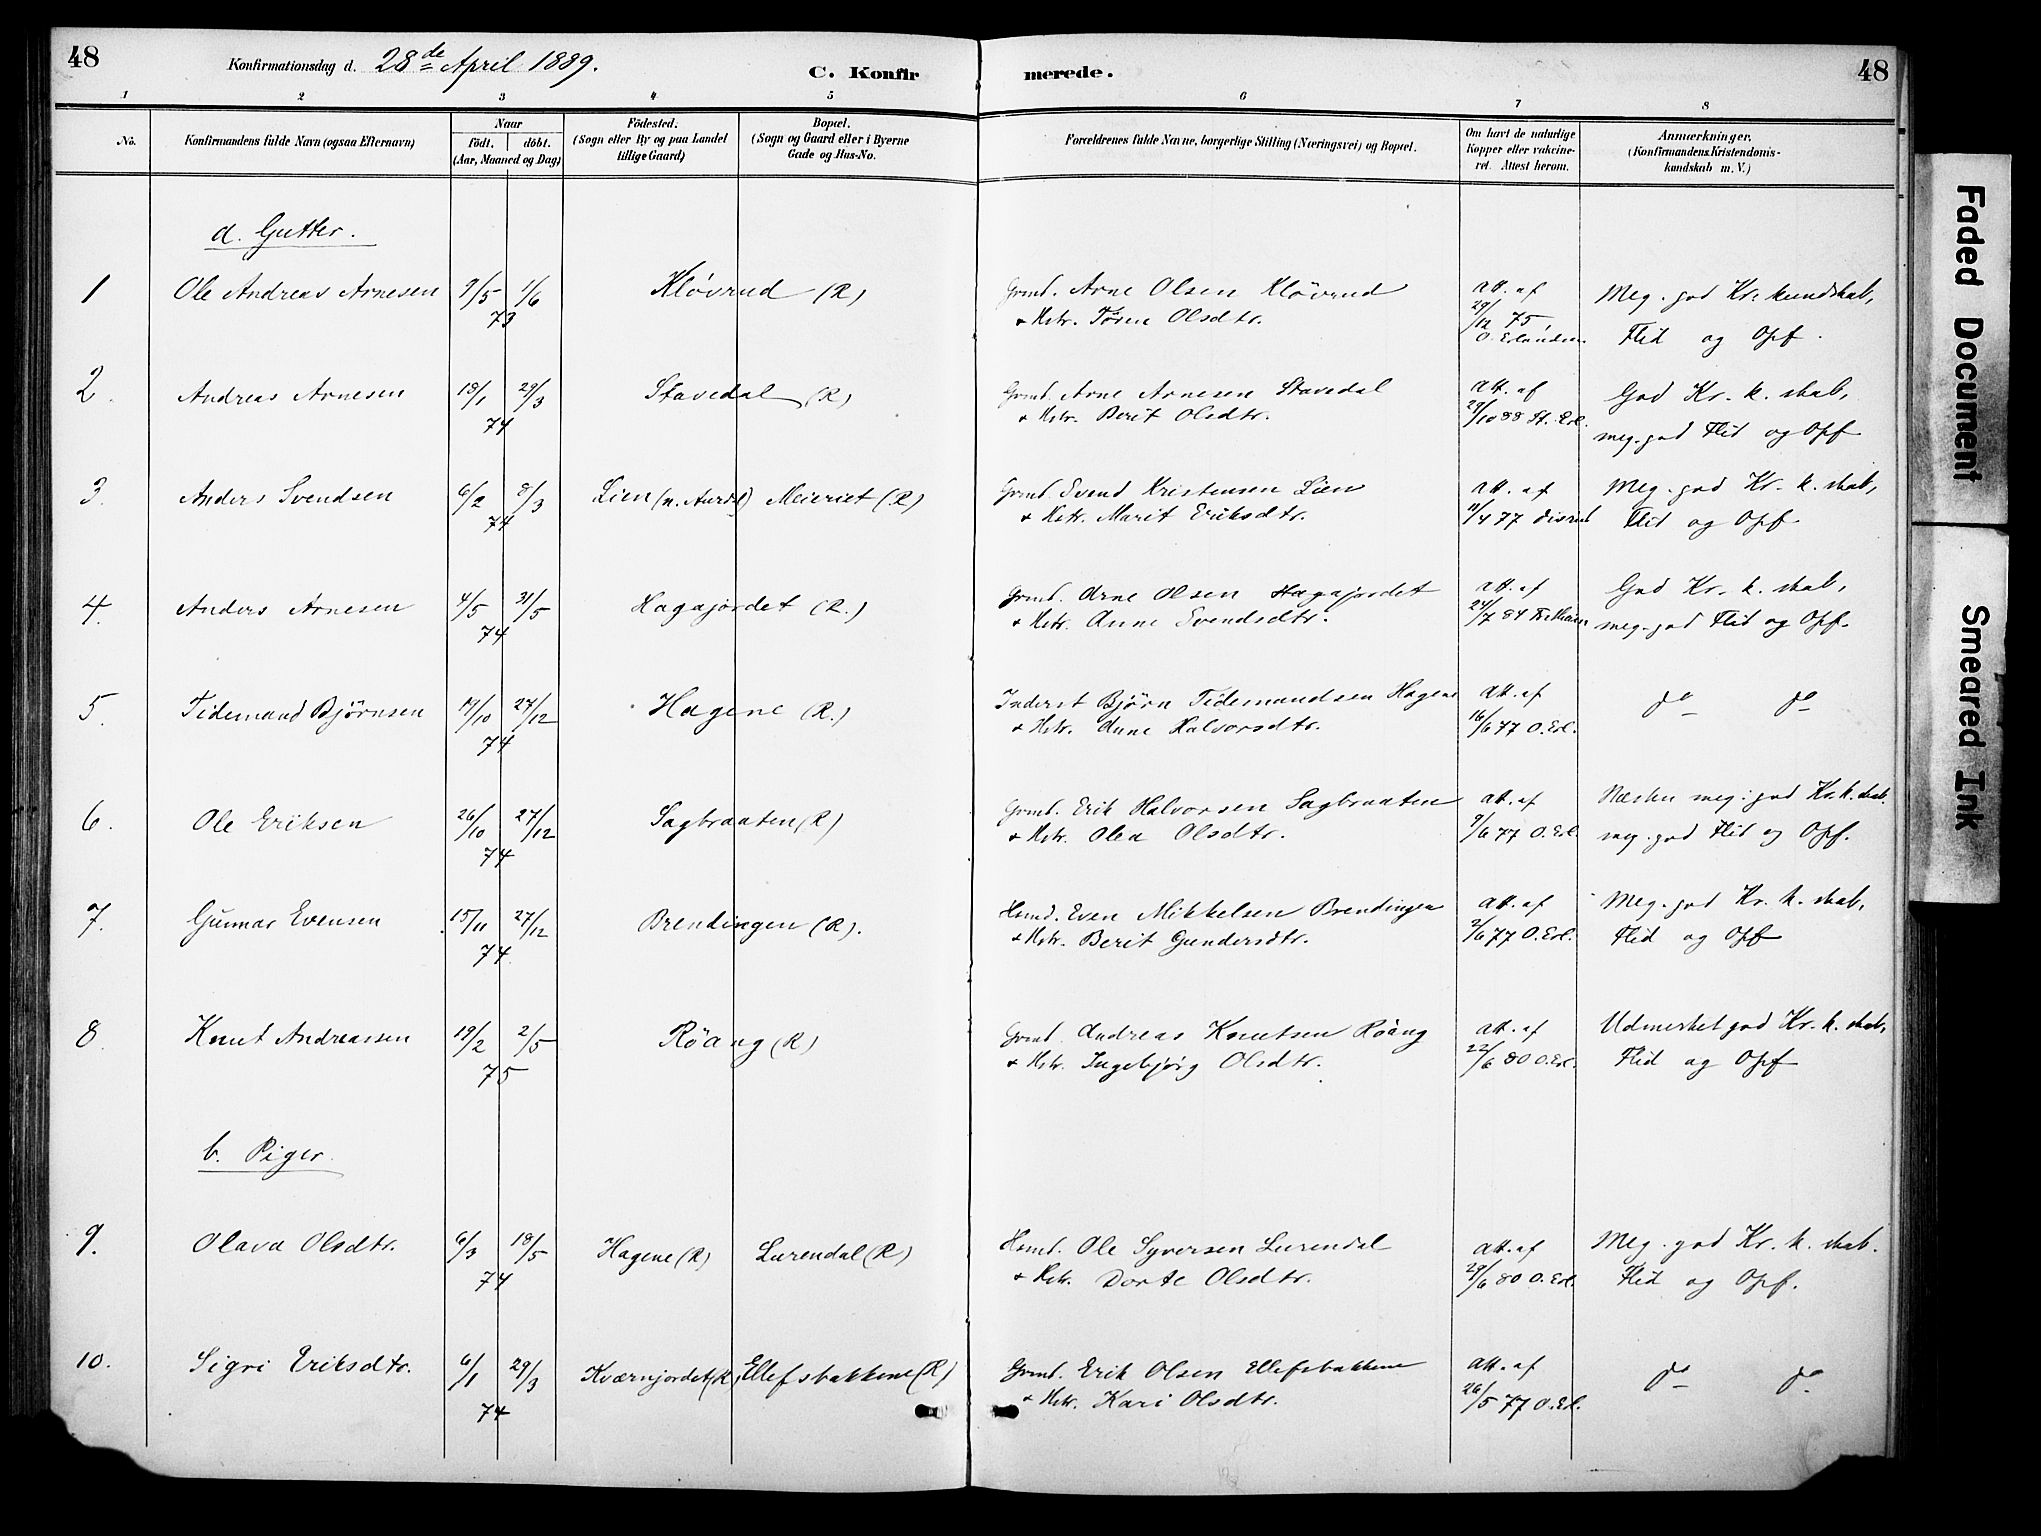 48 Konfirmationsdag d. 28de April 1889. C. Konfirmerede. 48
1 2 3 4 5 6 7 8
No. Konfirmandens fulde Navn (ogsaa Efternavn) Naar födt. döbt. (Aar, Maaned og Dag) Födested. (Sogn eller By og paa Landet tillige Gaard) Bopæl. (Sogn og Gaard eller i Byerne Gade og Hus-No. Forældrenes fulde Navne, borgerlige Stilling (Næringsvei) og Bopæl. Om havt de naturlige Kopper eller vakcineret. Attest herom. Anmærkninger. (Konfirmandens Kristendomskundskab m. V.)
a. Gutter.
1 Ole Andreas Arnesen 9/5 1/6 Kløvrud (R) Grmd. Arne Olsen Kløvrud Att. af Meg. god Kr. kundskab,
73 + Hstr. Tørin Olsdtr. 29/12 75, O. Erlandsen Flid og Opf.
2. Andreas Arnesen 18/1 29/3 Stavedal (R) Grmd. Arne Arnesen Stavedal Att. af God Kr. k. skab,
74 + Hstr. Berit Olsdtr. 29/10 88 St. Erl. meg. god Flid og Opf
3. Anders Svendsen 6/2 8/3 Lien (n. Aurdl) Meieriet (R) Grmd. Svend Kristensen Lien Att. af Meg. god Kr. k. skab,
74 + Hstr. Marit Eriksdtr. 11/4 77 Flid og Opf.
4. Anders Arnesen 4/5 31/5 Hagajordet (R.) Grmd. Arne Olsen Hagajordet Att. af God Kr. k. skab,
74 + Hstr. Anne Svendsdtr. 24/7 84 meg. god Flid og Opf.
5. Tidemand Björnsen 17/10 27/12 Hagene (R.) Inderst Björn Tidemandsen Hagene Att. af do do
74 + Hstr. Anne Halvorsdtr. 16/6 77 O. Erl.
6. Ole Eriksen 26/10 27/12 Sagbraaten (R) Grmd. Erik Halvorsen Sagbraaten Att. af Næsten meg. god Kr. k. skab.
74 + Hstr. Olea Olsdtr. 9/6 77 O. Erl. meg. god Flid og Opf.
7. Gunnar Evensen 15/11 27/12 Brendingen (R). Hsmd. Even Mikkelsen Brendingen Att. af Meg. god Kr. k. skab,
74. + Hstr. Berit Gundersdtr. 2/6 77 O. Erl. Flid og Opf
8. Knut Andreassen 19/2 2/5 Röang (R) Grmd. Andreas Knutsen Röang Att. af Udmerket god Kr. k. skab,
75 + Hstr. Ingebjörg Olsdtr. 22/6 80 O. Erl. Flid og Opf
b. Piger.
9. Olava Olsdtr. 6/3 18/5 Hagene (R) Lurendal (R) Hsmd. Ole Syversen Lurendal Att. af Meg. god Kr. k. skab.
74 + Hstr. Dorte Olsdtr. 29/6 80 O. Erl. Flid og Opf.
10. Sigri Eriksdtr. 6/1 29/3 Kværnjordet (R) Ellefsbakkene (R) Grmd. Erik Olsen Ellefsbakkene Att. af do do
74 + Hstr. Kari Olsdtr. 26/5 77 O. Erl.
Faded Document
Smeared Ink